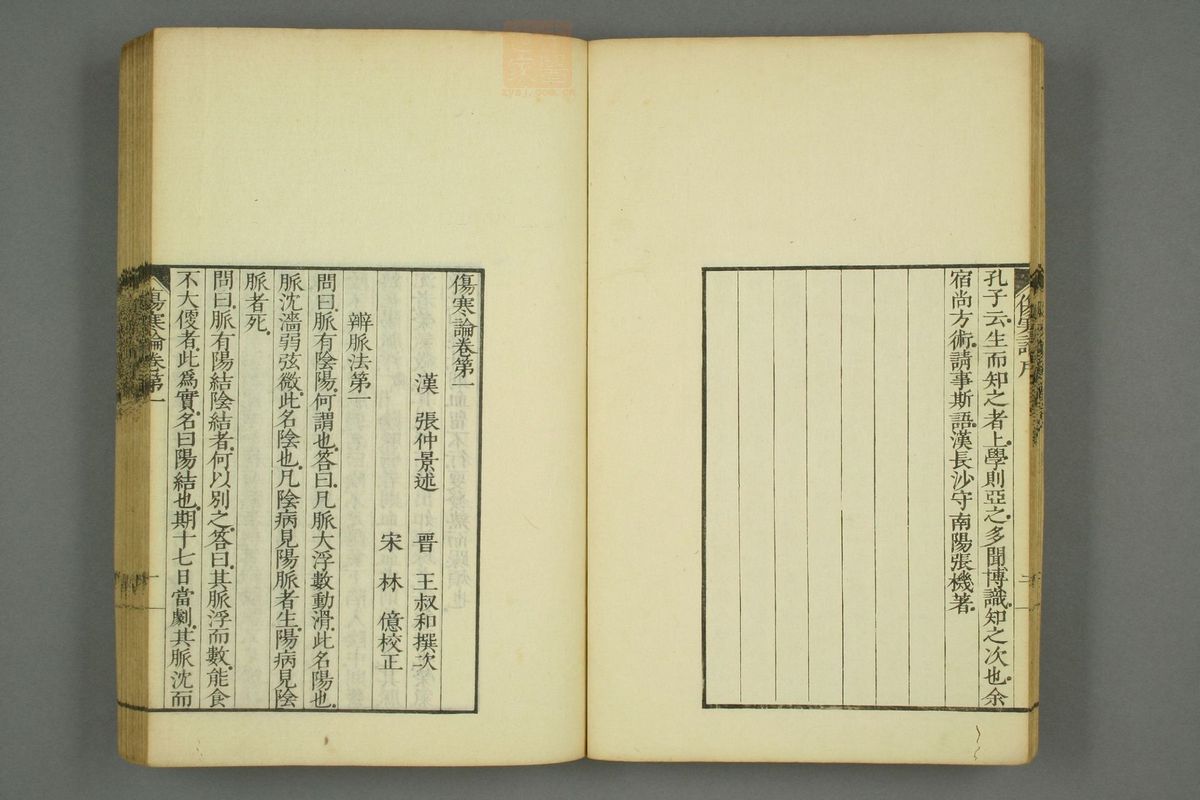 孔子云。生而知之者上。學則亞之。多聞博識。知之次也。余
宿尚方術。請事斯語。漢長沙守南陽張機著。
傷寒論卷第一
漢 張仲景述 晋 王叔和撰次
宋 林 億校正
辨脈法第一
問曰。脈有陰陽。何謂也。答曰。凡脈大浮數動滑。此名陽也。
脈沈濇弱弦微。此名陰也。凡陰病見陽脈者生。陽病見陰
脈者死。
問曰。脈有陽結陰結者。何以別之。答曰。其脈浮而數。能食
不大便者。此爲實。名曰陽結也。期十七日當劇。其脈沈而
傷寒論卷第一
一
zysj.com.cn